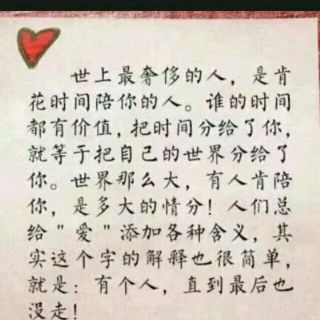 世上最奢侈的人，是肯
花时间陪你的人。谁的时间
都有价值，把时间分给了你，
就等于把自己的世界分给了
你。世界那么大，有人肯陪
你，是多大的情分！人们总
给"爱"添加各种含义，其
实这个字的解释也很简单，
就是：有个人，直到最后也
没走！